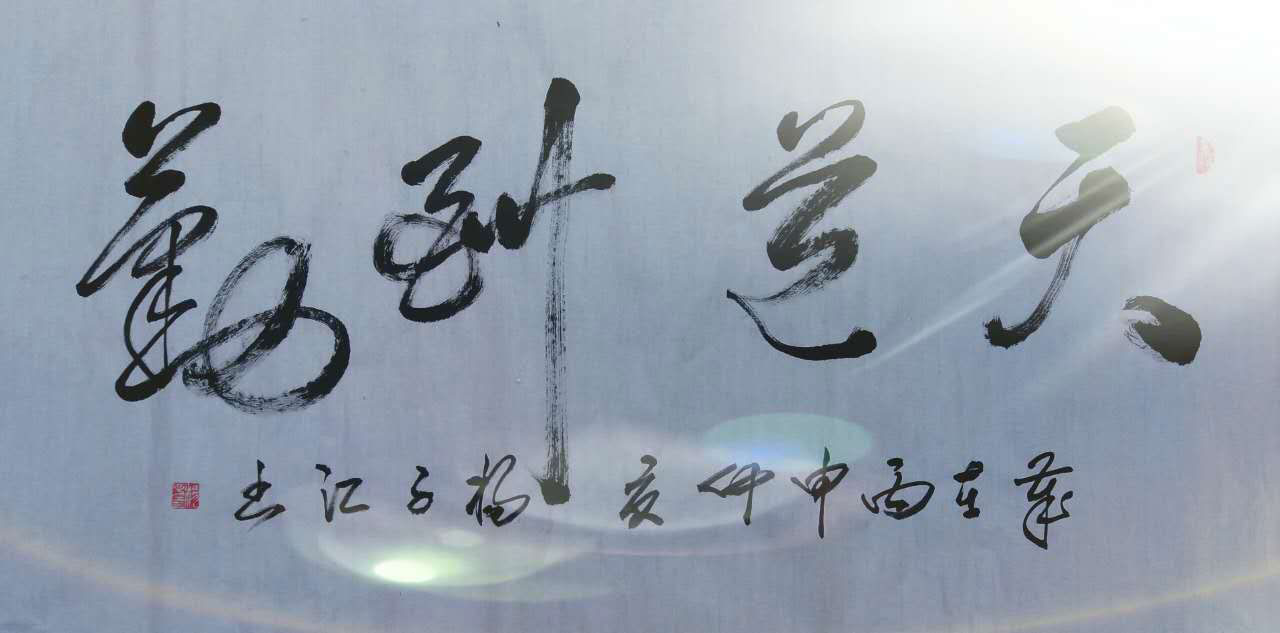 天道酬勤
岁在丙申仲夏杨子江书